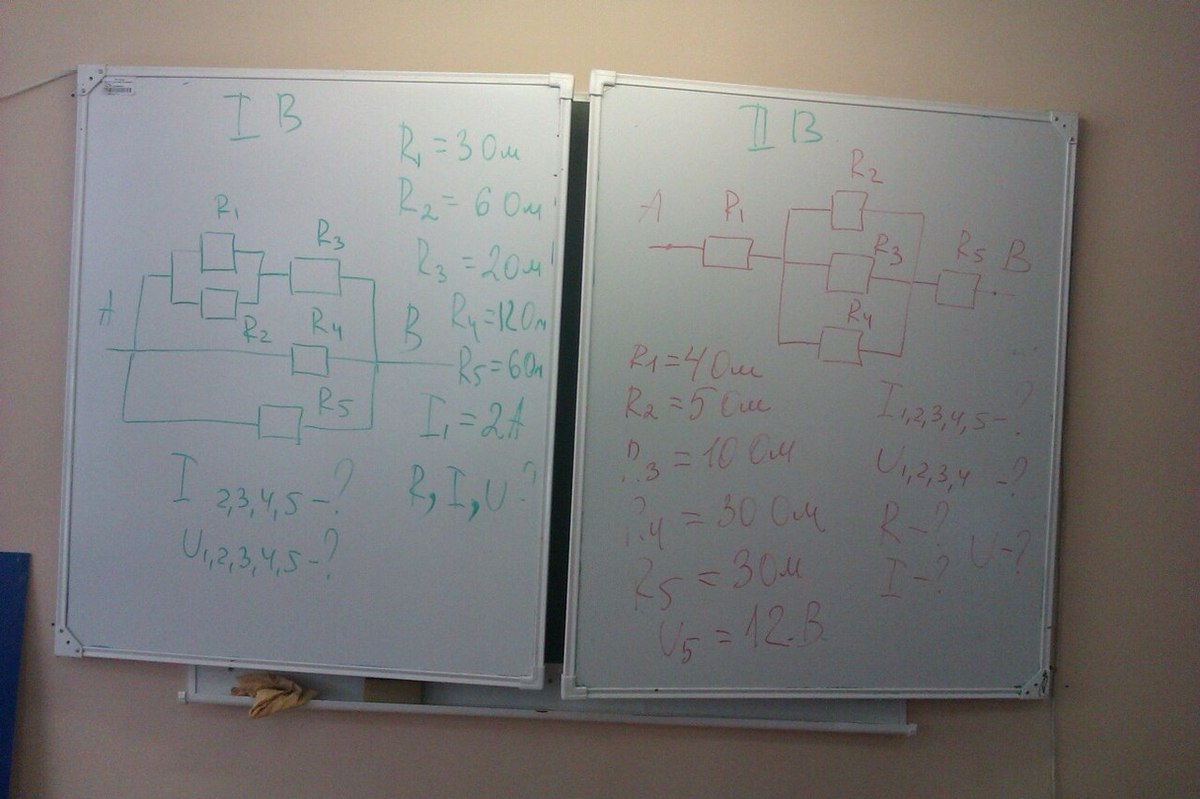 I В
R₁ = 3 Ом
R₂ = 6 Ом
R₃ = 2 Ом
R₄ = 12 Ом
R₅ = 6 Ом
I₁ = 2А
R, I, U ?
R₁
R₃
R₂
R₄
A
B
R₅
I 2,3,4,5 – ?
U₁,₂,₃,₄,₅ – ?
II В
R₂
A
R₁
R₃
R₅
B
R₄
R₁ = 4 Ом
R₂ = 5 Ом
R₃ = 10 Ом
R₄ = 30 Ом
R₅ = 3 Ом
U₅ = 12 В
I₁,₂,₃,₄,₅ – ?
U₁,₂,₃,₄ – ?
R – ?
U – ?
I – ?